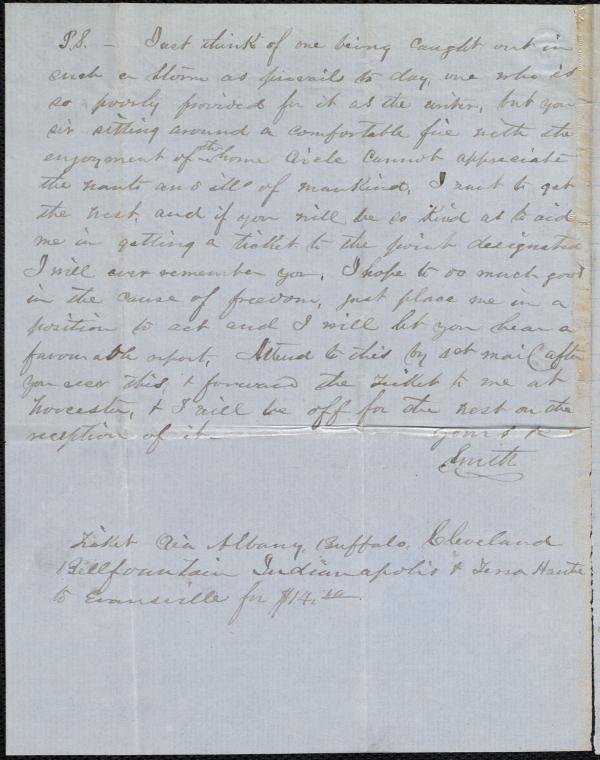 P.S. — Just think of one being caught out in
such a storm as prevails to day, one who is
so poorly provided for it as the writer, but you
sir sitting around a comfortable fire with the
enjoyment of the home circle cannot appreciate
the wants and ills of mankind. I want to get
the West, and if you will be so kind as to aid
me in getting a ticket to the point designated
I will ever remember you. I hope to do much good
in the cause of freedom, just place me in a
position to act and I will let you hear a
favourable report. Attend to this by 1st mail after
you rece this, & forward the ticket to me at
Worcester, & I will be off for the West on the
reception of it. Yours &
Smith
Ticket via Albany, Buffalo, Cleveland
Billfountain Indianapolis & Terra Haute
to Evansville for $14.